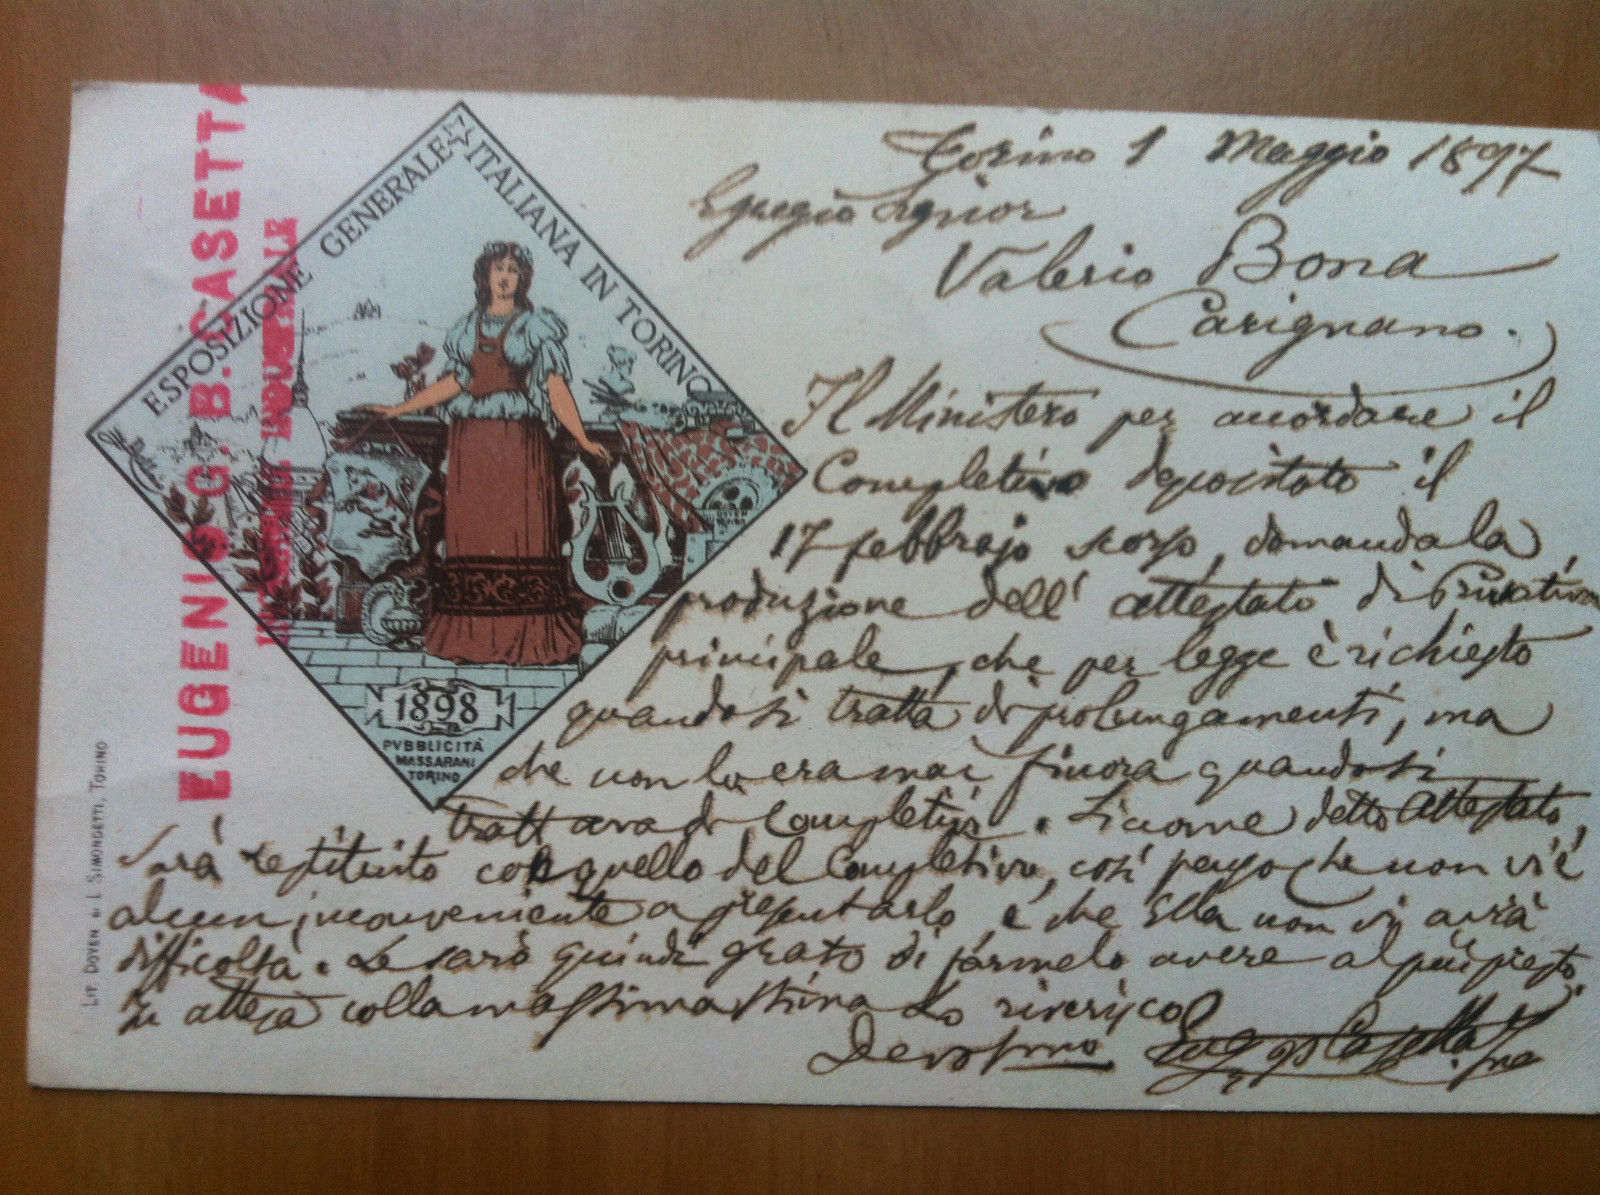 EUGENIO G. B. CASETTA
ESPOSIZIONE GENERALE ITALIANA IN TORINO
1898
PVBBLICITÀ
MASSARANI
TORINO
DOYEN
TORINO
LIT. DOYEN DI L. SIMONDETTI, TORINO
Torino 1 Maggio 1897
Egregio Signor
Valerio Bona
Carignano.
Il Ministero per accordare il
Completivo depositato il
17 febbrajo scorso, domanda la
produzione dell' attestato di Privativa
principale, che per legge è richiesto
quando si tratta di prolungamenti, ma
che non lo era mai finora quando si
trattava di Completivi. Siccome detto attestato,
sarà restituito con quello del Completivo, così penso che non vi è
alcun inconveniente a presentarlo, e che Ella non vi avrà
difficoltà. Le sarò quindi grato di farmelo avere al più presto.
In attesa colla massima stima La riverisco
Devotmo Casetta